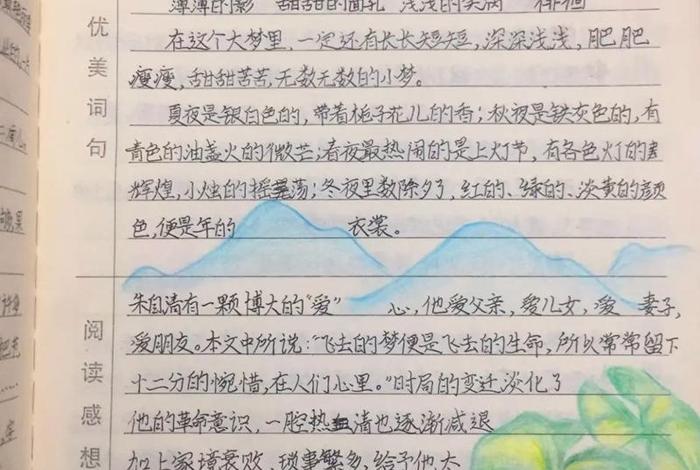 优美词句
薄薄的影 甜甜的面孔 浅浅的笑涡 徘徊
在这个大梦里,一定还有长长短短,深深浅浅,肥肥
瘦瘦,甜甜苦苦,无数无数的小梦。
夏夜是银白色的,带着栀子花儿的香;秋夜是铁灰色的,有
青色的油盏火的微芒;春夜最热闹的是上灯节,有各色灯的
辉煌,小烛的摇荡;冬夜里数除夕了,红的、绿的、淡黄的颜
色,便是年的 衣裳。
阅读感想
朱自清有一颗博大的"爱" 心,他爱父亲,爱儿女,爱 妻子,
爱朋友。本文中所说:"飞去的梦便是飞去的生命,所以常常留下
十二分的惋惜,在人们心里。"时局的变迁淡化了
他的革命意识,一腔热血清也逐渐减退
加上家境衰败,琐事繁多,给予他太